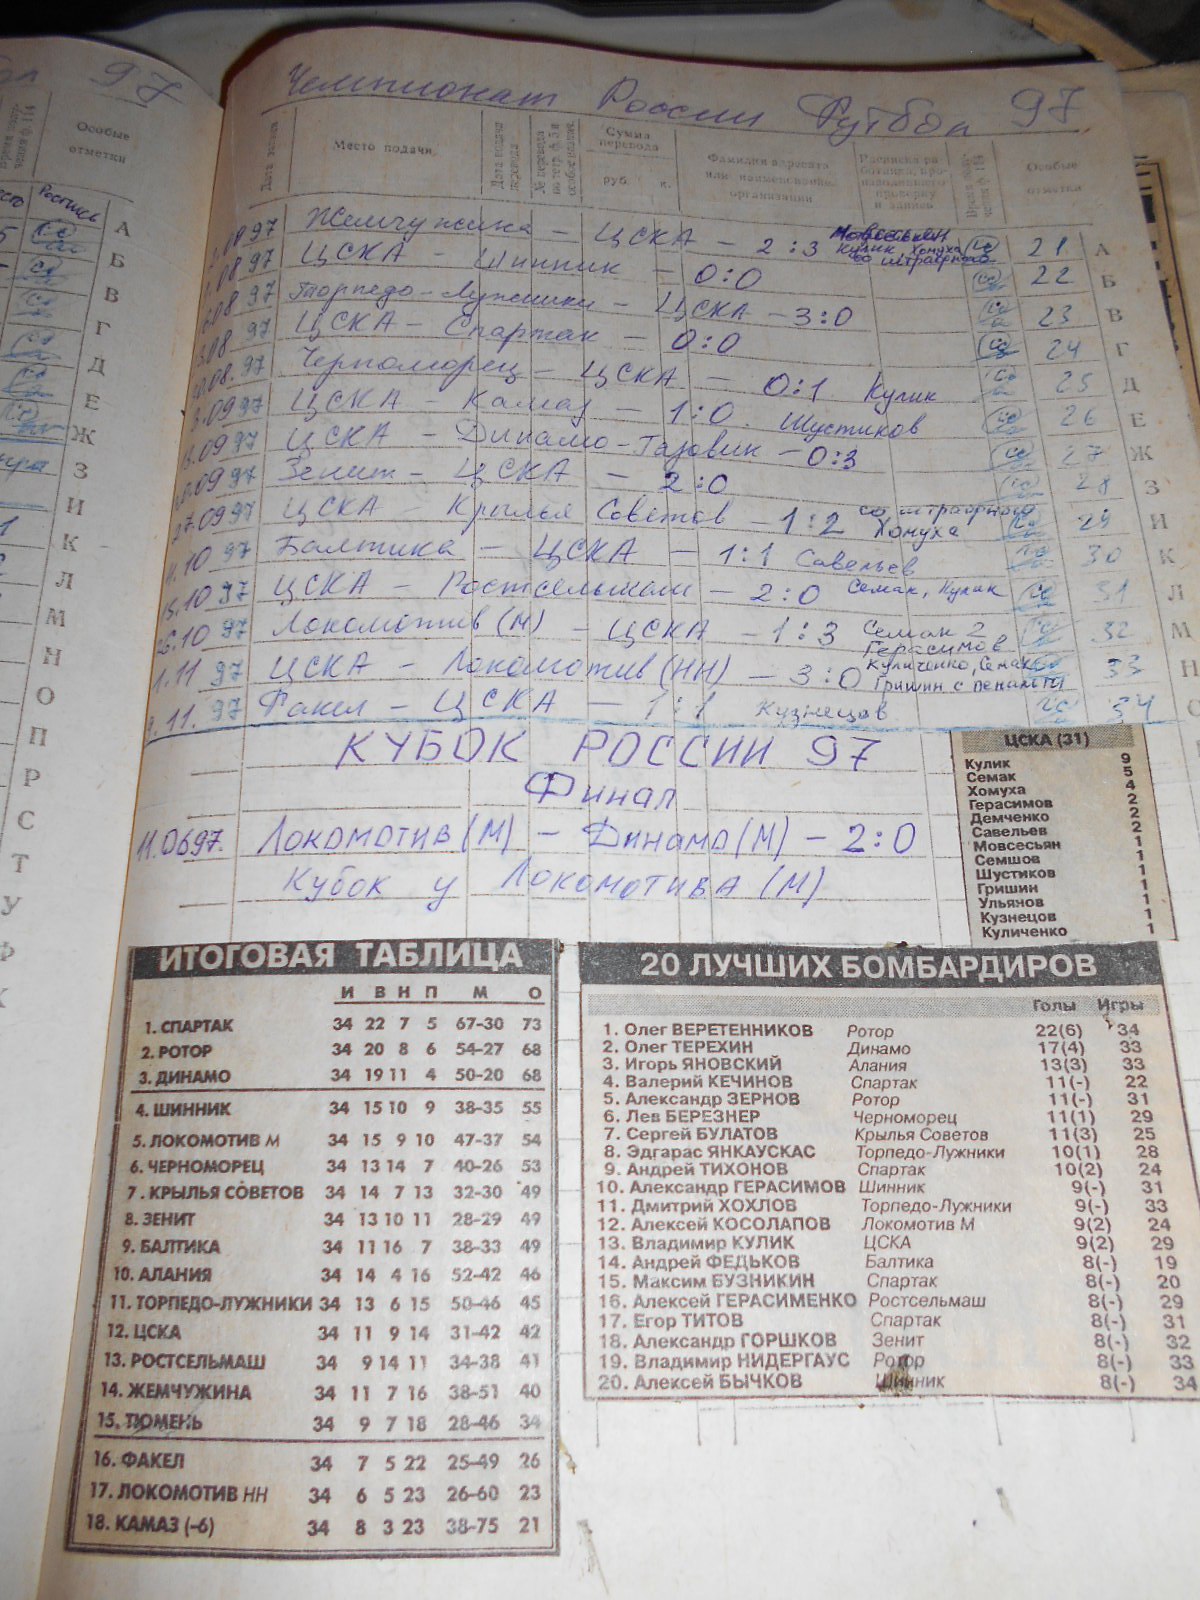 97
Особые
отметки
Роспись
А
Б
В
Г
Д
Е
Ж
З
И
К
Л
М
Н
О
П
Р
С
Т
У
Ф
Чемпионат России Футбол 97
Место подачи
Сумма перевода
руб. к.
Фамилия адресата или наименование организации
Особые отметки
08 97 Жемчужина – ЦСКА – 2:3 Мовсесьян Кулик Хомуха со штрафного 21 А
08 97 ЦСКА – Шинник – 0:0 22 Б
08 97 Торпедо-Лужники – ЦСКА – 3:0 23 В
08 97 ЦСКА – Спартак – 0:0 24 Г
08. 97 Черноморец – ЦСКА – 0:1 Кулик 25 Д
09 97 ЦСКА – Камаз – 1:0 Шустиков 26 Е
09 97 ЦСКА – Динамо-Газовик – 0:3 27 Ж
09 97 Зенит – ЦСКА – 2:0 28 З
27.09 97 ЦСКА – Крылья Советов – 1:2 со штрафного Хомуха 29 И
4.10 97 Балтика – ЦСКА – 1:1 Савельев 30 К
15.10 97 ЦСКА – Ростсельмаш – 2:0 Семак, Кулик 31 Л
26.10 97 Локомотив (М) – ЦСКА – 1:3 Семак 2 Герасимов 32 М
1.11 97 ЦСКА – Локомотив (НН) – 3:0 Куличенко, Семак Гришин с пенальти 33 Н
9.11. 97 Факел – ЦСКА – 1:1 Кузнецов 34
КУБОК РОССИИ 97
Финал
11.06 97. Локомотив (М) – Динамо (М) – 2:0
Кубок у Локомотива (М)
ЦСКА (31)
Кулик 9
Семак 5
Хомуха 4
Герасимов 2
Демченко 2
Савельев 2
Мовсесьян 1
Семшов 1
Шустиков 1
Гришин 1
Ульянов 1
Кузнецов 1
Куличенко 1
ИТОГОВАЯ ТАБЛИЦА
И В Н П М О
1. СПАРТАК 34 22 7 5 67-30 73
2. РОТОР 34 20 8 6 54-27 68
3. ДИНАМО 34 19 11 4 50-20 68
4. ШИННИК 34 15 10 9 38-35 55
5. ЛОКОМОТИВ М 34 15 9 10 47-37 54
6. ЧЕРНОМОРЕЦ 34 13 14 7 40-26 53
7. КРЫЛЬЯ СОВЕТОВ 34 14 7 13 32-30 49
8. ЗЕНИТ 34 13 10 11 28-29 49
9. БАЛТИКА 34 11 16 7 38-33 49
10. АЛАНИЯ 34 14 4 16 52-42 46
11. ТОРПЕДО-ЛУЖНИКИ 34 13 6 15 50-46 45
12. ЦСКА 34 11 9 14 31-42 42
13. РОСТСЕЛЬМАШ 34 9 14 11 34-38 41
14. ЖЕМЧУЖИНА 34 11 7 16 38-51 40
15. ТЮМЕНЬ 34 9 7 18 28-46 34
16. ФАКЕЛ 34 7 5 22 25-49 26
17. ЛОКОМОТИВ НН 34 6 5 23 26-60 23
18. КАМАЗ (-6) 34 8 3 23 38-75 21
20 ЛУЧШИХ БОМБАРДИРОВ
Голы Игры
1. Олег ВЕРЕТЕННИКОВ Ротор 22(6) 34
2. Олег ТЕРЕХИН Динамо 17(4) 33
3. Игорь ЯНОВСКИЙ Алания 13(3) 33
4. Валерий КЕЧИНОВ Спартак 11(-) 22
5. Александр ЗЕРНОВ Ротор 11(-) 31
6. Лев БЕРЕЗНЕР Черноморец 11(1) 29
7. Сергей БУЛАТОВ Крылья Советов 11(3) 25
8. Эдгарас ЯНКАУСКАС Торпедо-Лужники 10(1) 28
9. Андрей ТИХОНОВ Спартак 10(2) 24
10. Александр ГЕРАСИМОВ Шинник 9(-) 31
11. Дмитрий ХОХЛОВ Торпедо-Лужники 9(-) 33
12. Алексей КОСОЛАПОВ Локомотив М 9(2) 24
13. Владимир КУЛИК ЦСКА 9(2) 29
14. Андрей ФЕДЬКОВ Балтика 8(-) 19
15. Максим БУЗНИКИН Спартак 8(-) 20
16. Алексей ГЕРАСИМЕНКО Ростсельмаш 8(-) 29
17. Егор ТИТОВ Спартак 8(-) 31
18. Александр ГОРШКОВ Зенит 8(-) 32
19. Владимир НИДЕРГАУС Ротор 8(-) 33
20. Алексей БЫЧКОВ Шинник 8(-) 34